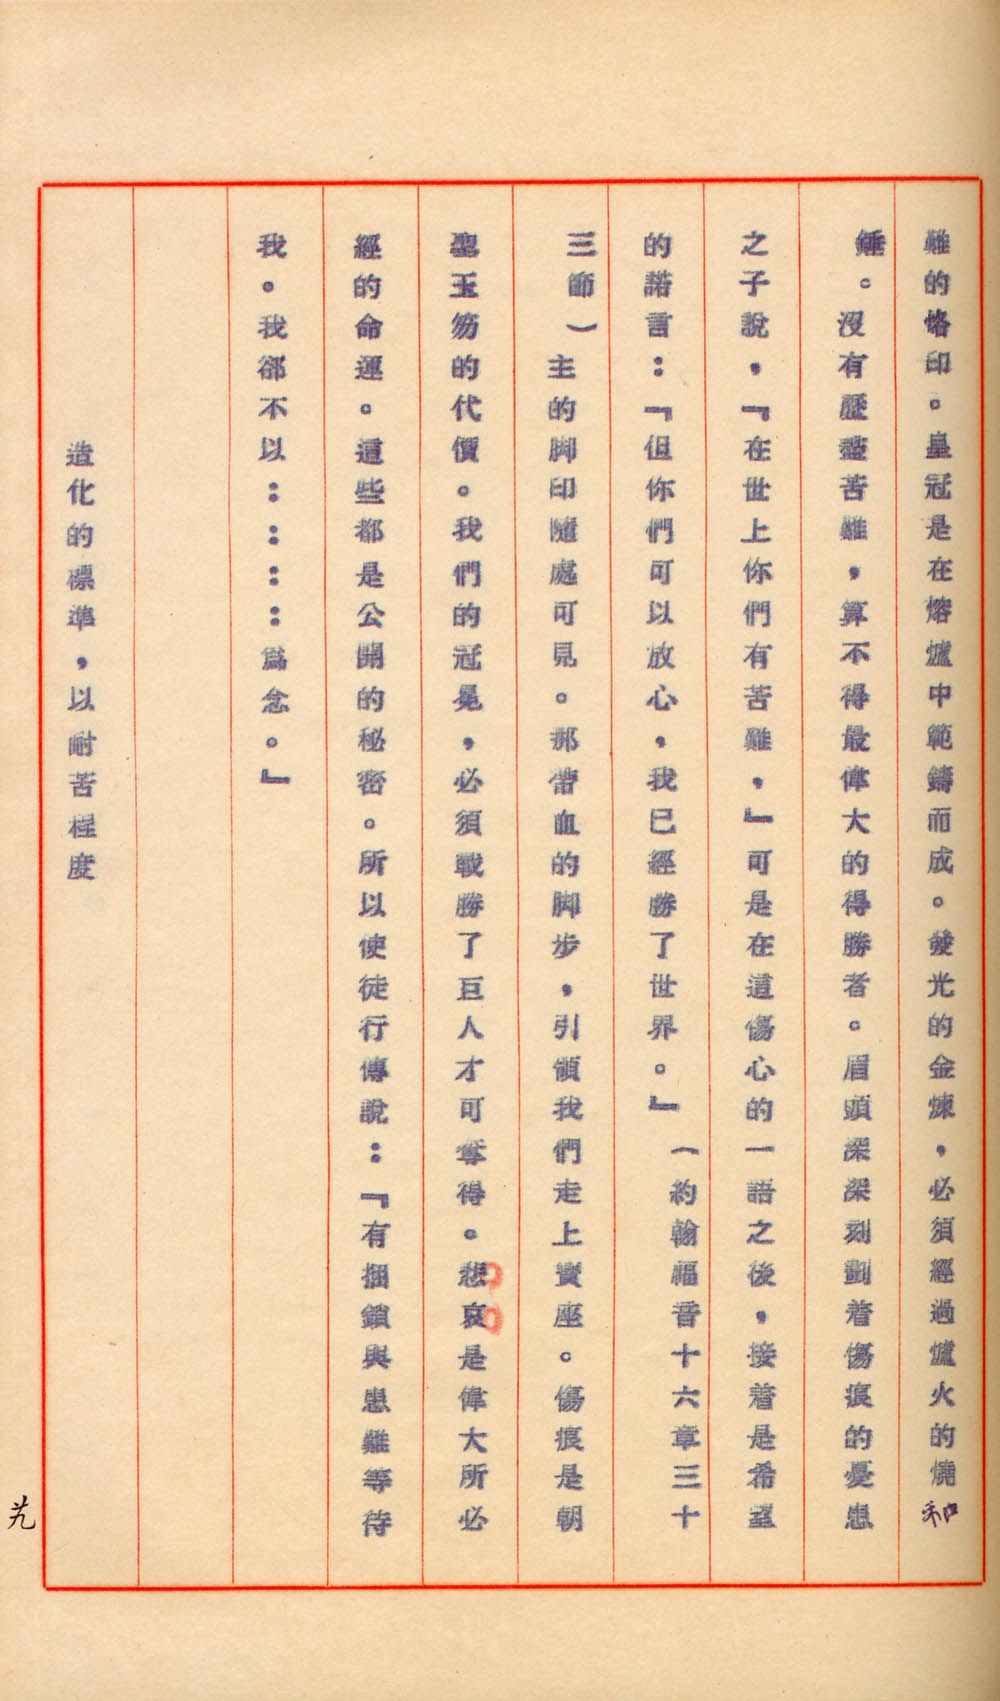 難的烙印。皇冠是在熔爐中範鑄而成。發光的金煉，必須經過爐火的燒和
錘。沒有歷盡苦難，算不得最偉大的得勝者。眉頭深深刻劃着傷痕的憂患
之子說，『在世上你們有苦難，』可是在這傷心的一語之後，接着是希望
的諾言：『但你們可以放心，我已經勝了世界。』（約翰福音十六章三十
三節）主的脚印隨處可見。那帶血的脚步，引領我們走上寶座。傷痕是朝
聖玉笏的代價。我們的冠冕，必須戰勝了巨人才可奪得。悲哀是偉大所必
經的命運。這些都是公開的秘密。所以使徒行傳說：『有捆鎖與患難等待
我。我郤不以：：：：為念。』
造化的標準，以耐苦程度
艽